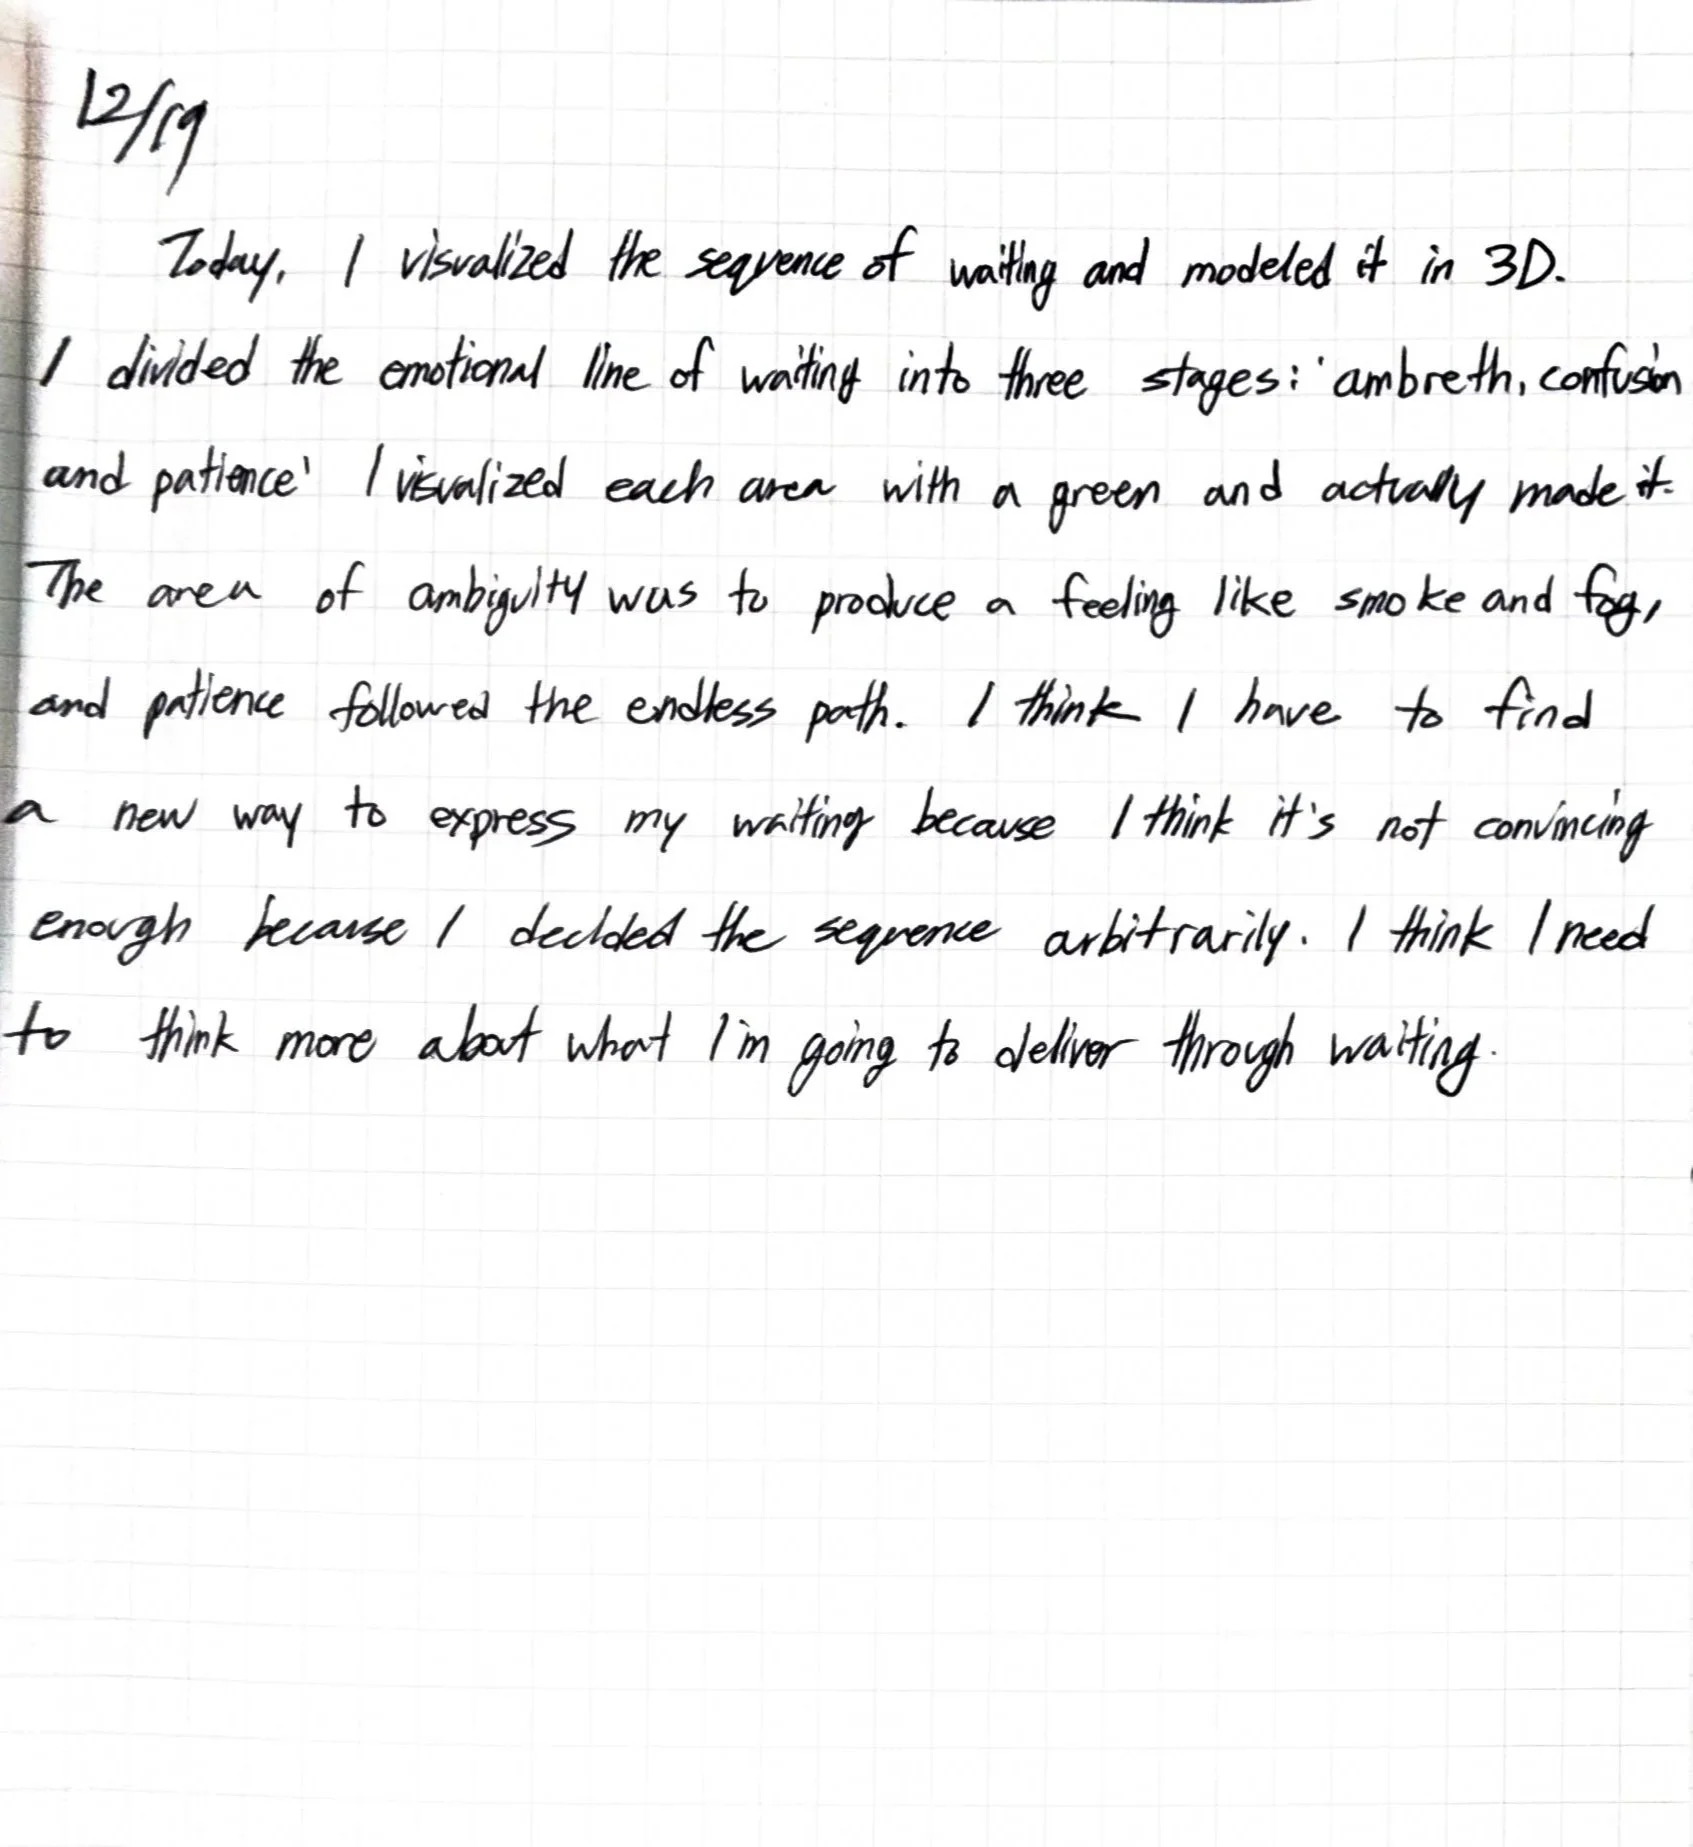 12/19
Today, I visualized the sequence of waiting and modeled it in 3D.
I divided the emotional line of waiting into three stages: 'ambreth, confusion
and patience' I visualized each area with a green and actually made it.
The area of ambiguity was to produce a feeling like smoke and fog,
and patience followed the endless path. I think I have to find
a new way to express my waiting because I think it's not convincing
enough because I decided the sequence arbitrarily. I think I need
to think more about what I'm going to deliver through waiting.